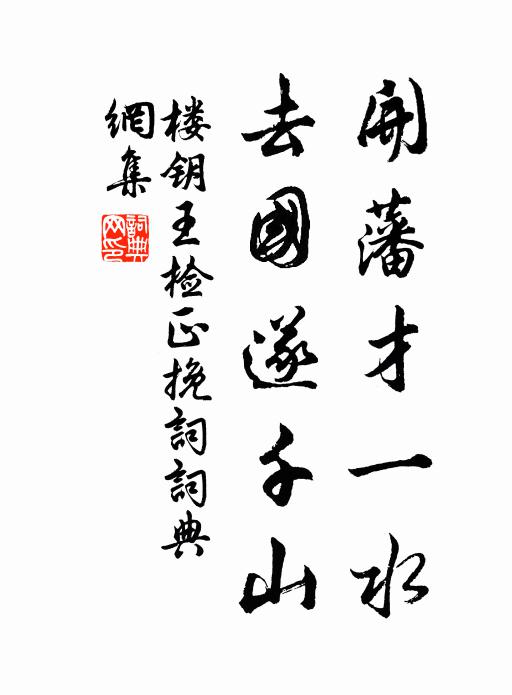 開藩才一水
去國遂千山
楼钥王检正挽詞詞典
網集
詞典网印